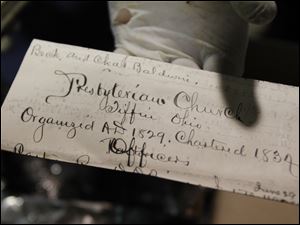 Beck and Chas Baldwin.
Presbyterian Church
Tiffin Ohio.
Organized AD 1829. Chartered 1837
Officers
June 30